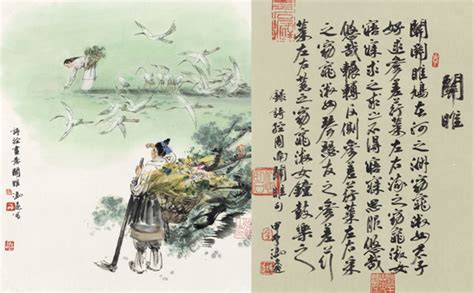 關雎
關關雎鳩在河之洲窈窕淑女君子
好逑參差荇菜左右流之窈窕淑女
寤寐求之求之不得寤寐思服悠哉
悠哉輾轉反側參差荇菜左右采
之窈窕淑女琴瑟友之參差荇
菜左右芼之窈窕淑女鐘鼓樂之
錄詩經周南關雎句
詩經畫意關雎